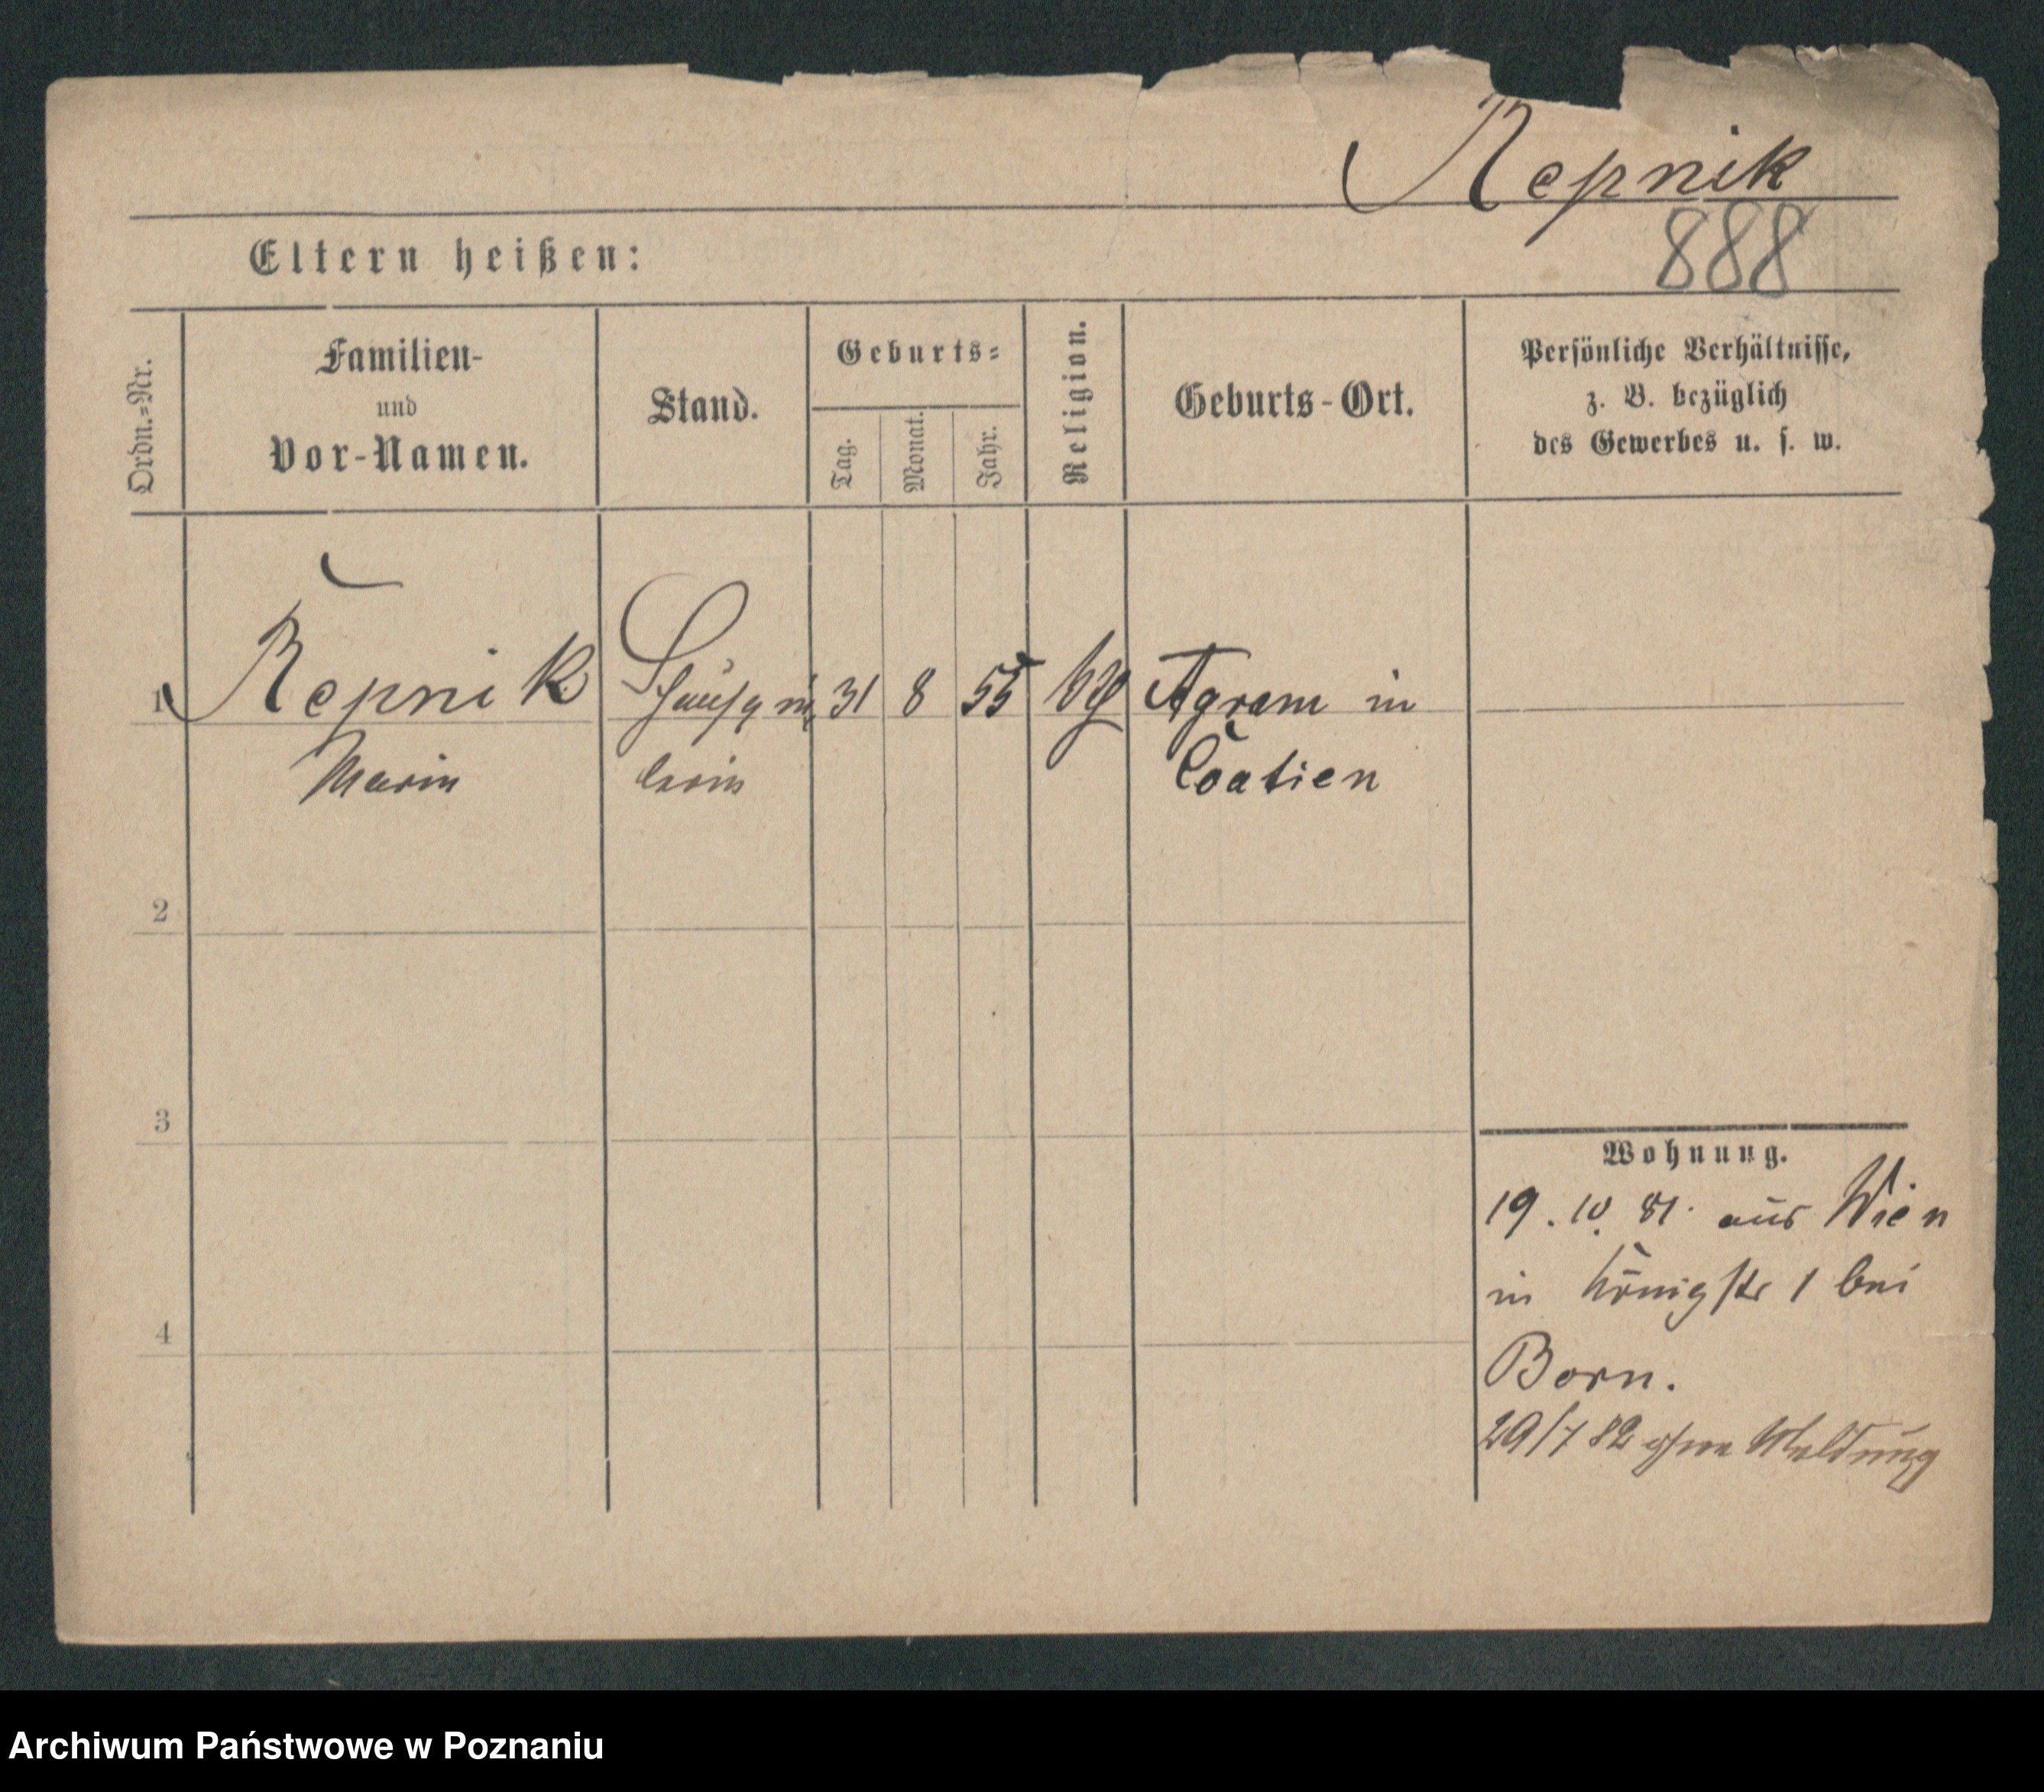 Repnik
888
Eltern heißen:
Ordn.-Nr.
Familien-
und
Vor-Namen.
Stand.
Geburts-
Tag.
Monat.
Jahr.
Religion.
Geburts-Ort.
Persönliche Verhältnisse,
z. B. bezüglich
des Gewerbes u. s. w.
1 Repnik 31 8 55 Agram in
Marie Coatien
2
3
4
Wohnung.
19. 10. 81. aus Wien
in Königstr 1 bei
Born.
29/7 82 ohne Meldung
Archiwum Państwowe w Poznaniu